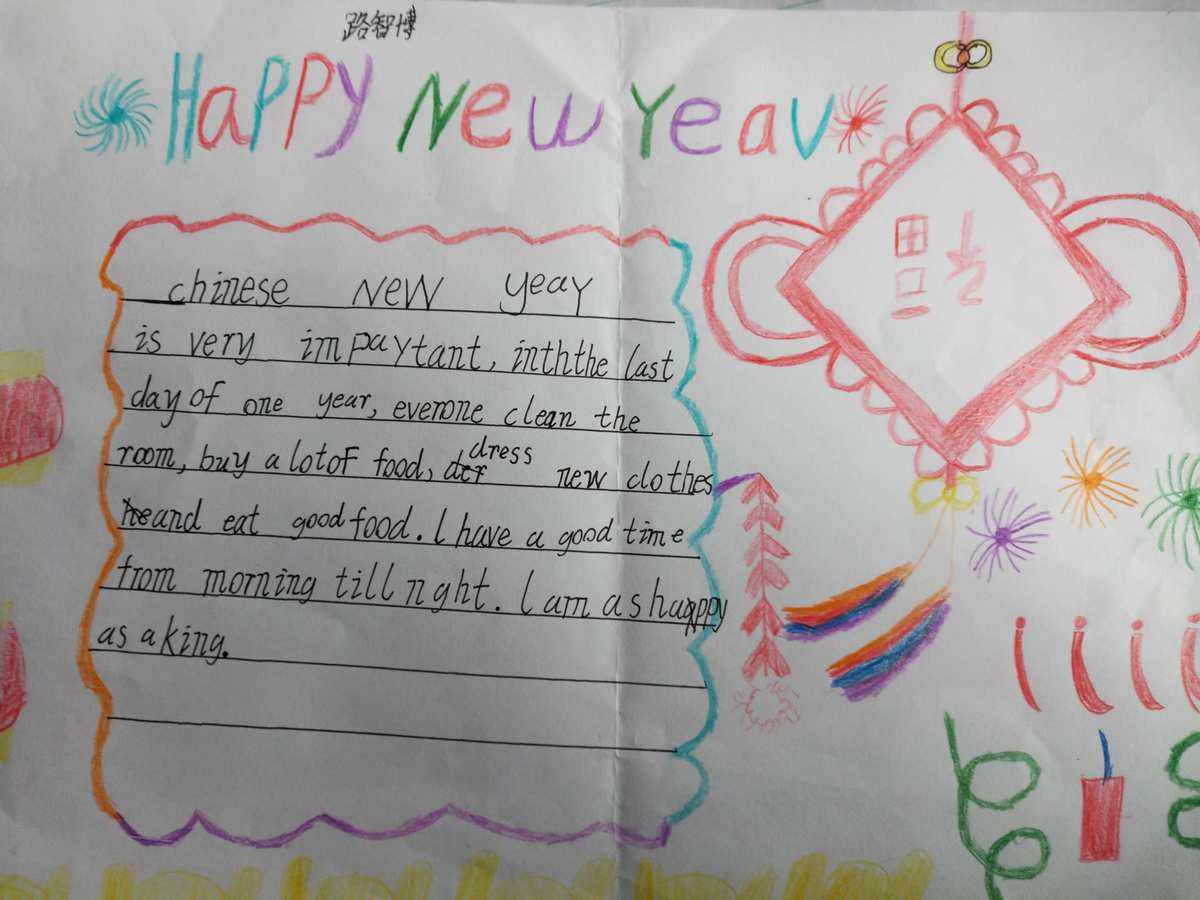 路智博
HaPPY New Year
chinese New yeay
is very impaytant, inththe last
day of one year, everone clean the
room, buy a lotof food, dress new clothes
and eat good food. I have a good time
from morning till nght. I am as happy
as aking.
福